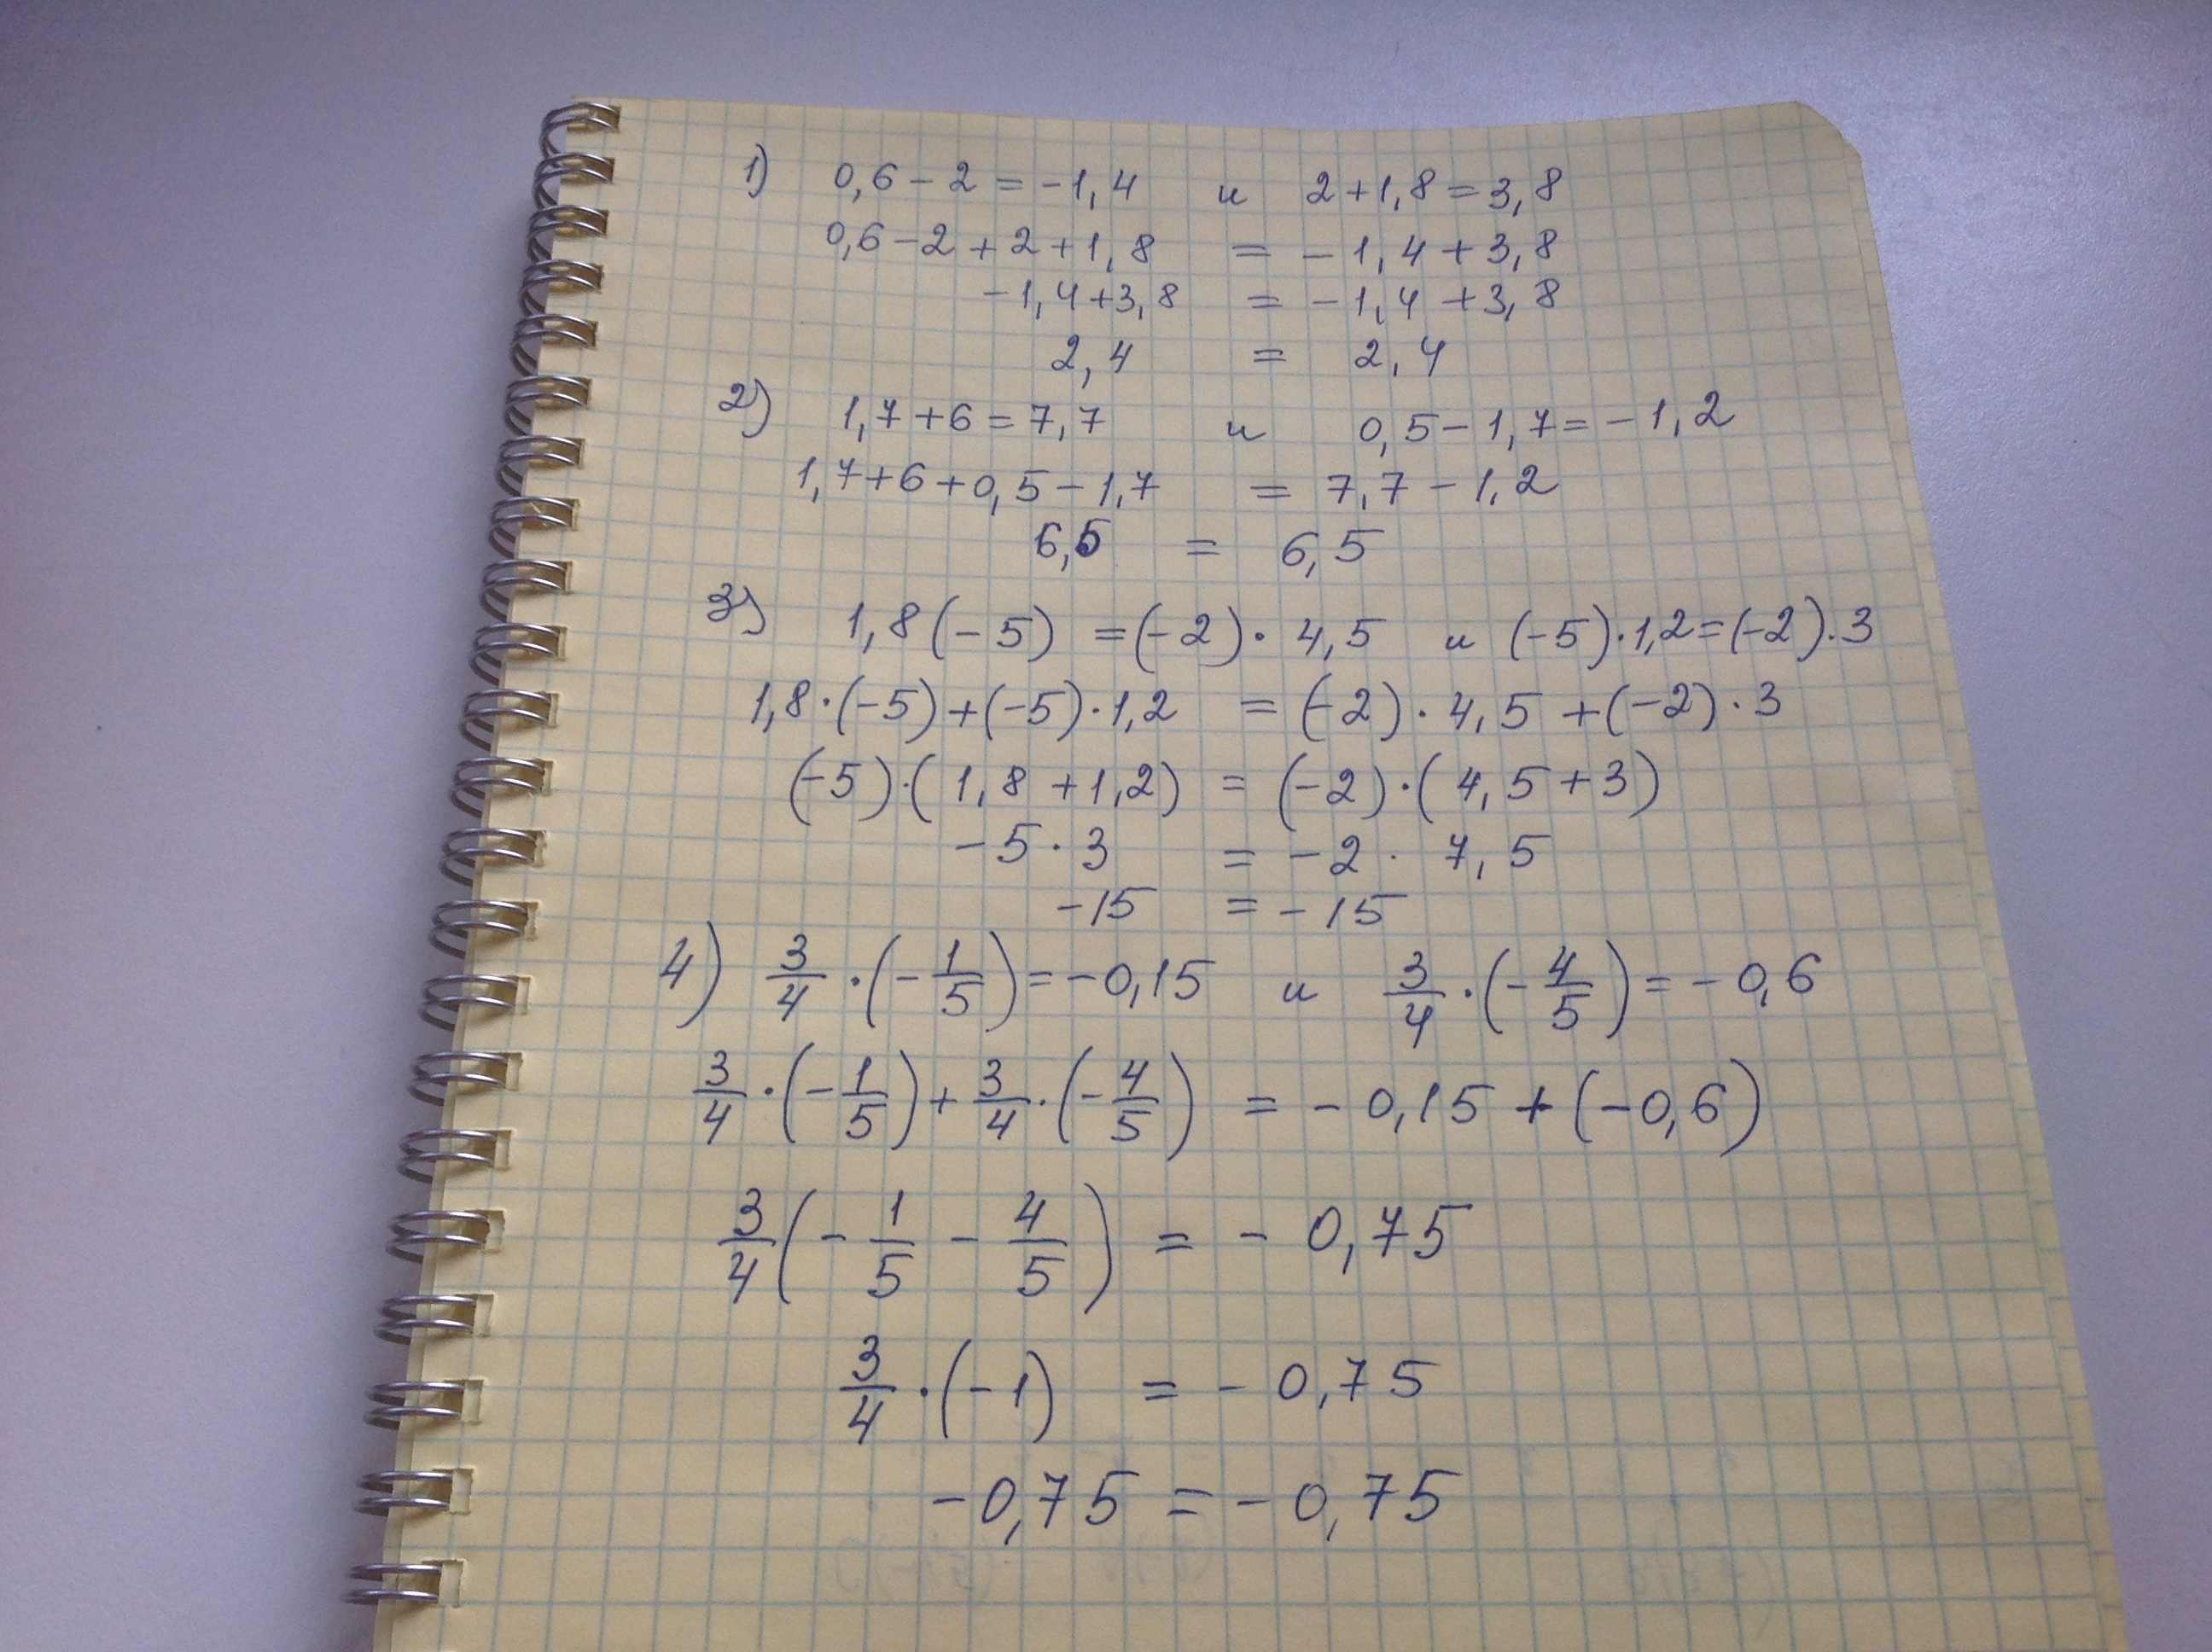 1) 0,6 - 2 = -1,4 и 2 + 1,8 = 3,8
0,6 - 2 + 2 + 1,8 = - 1,4 + 3,8
-1,4 + 3,8 = - 1,4 + 3,8
2,4 = 2,4
2) 1,7 + 6 = 7,7 и 0,5 - 1,7 = - 1,2
1,7 + 6 + 0,5 - 1,7 = 7,7 - 1,2
6,5 = 6,5
3) 1,8 (-5) = (-2) · 4,5 и (-5) · 1,2 = (-2) · 3
1,8 · (-5) + (-5) · 1,2 = (-2) · 4,5 + (-2) · 3
(-5) · (1,8 + 1,2) = (-2) · (4,5 + 3)
-5 · 3 = -2 · 7,5
-15 = -15
4) 3/4 · (- 1/5) = -0,15 и 3/4 · (- 4/5) = - 0,6
3/4 · (- 1/5) + 3/4 · (- 4/5) = - 0,15 + (-0,6)
3/4 (- 1/5 - 4/5) = - 0,75
3/4 · (-1) = - 0,75
-0,75 = - 0,75